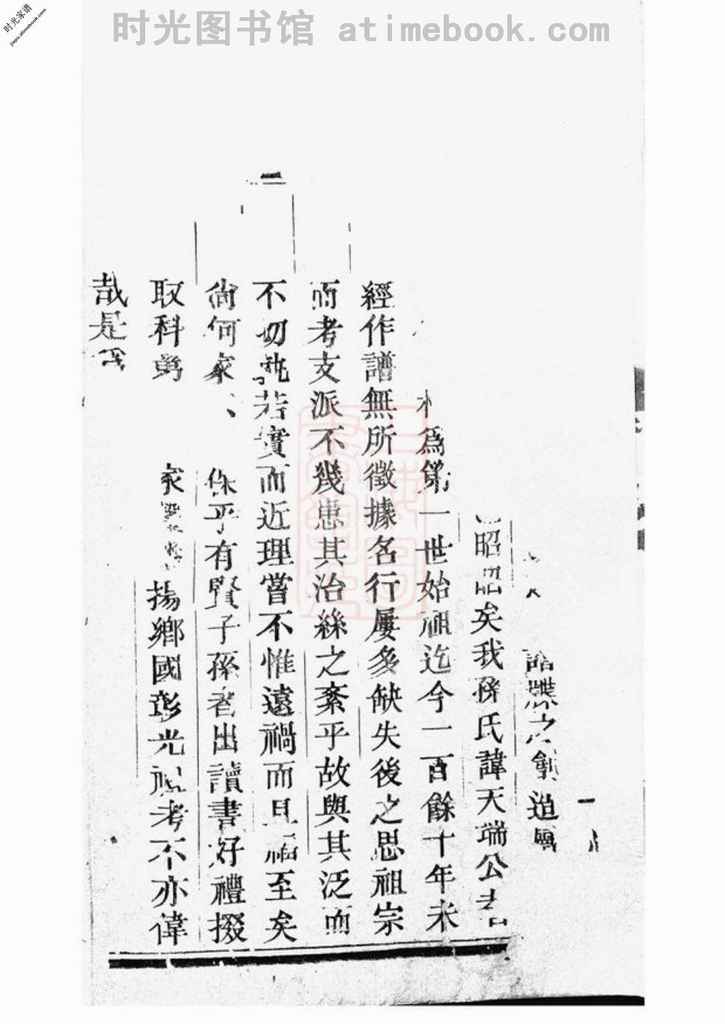 时光图书馆 atimebook.com
时光家谱
一
譜牒之創
昭昭矣我孫氏諱天端公
為第一世始祖迄今一百餘十年未
經作譜無所徵據名行屢多缺失後之思祖宗
而考支派不幾患其治絲之紊乎故與其泛而
不切孰若實而近理嘗不惟遠禍而且福至矣
尚何家 保乎有賢子孫者出讀書好禮掇
取科第 家聲 揚鄉國彰光祖考不亦偉
哉是